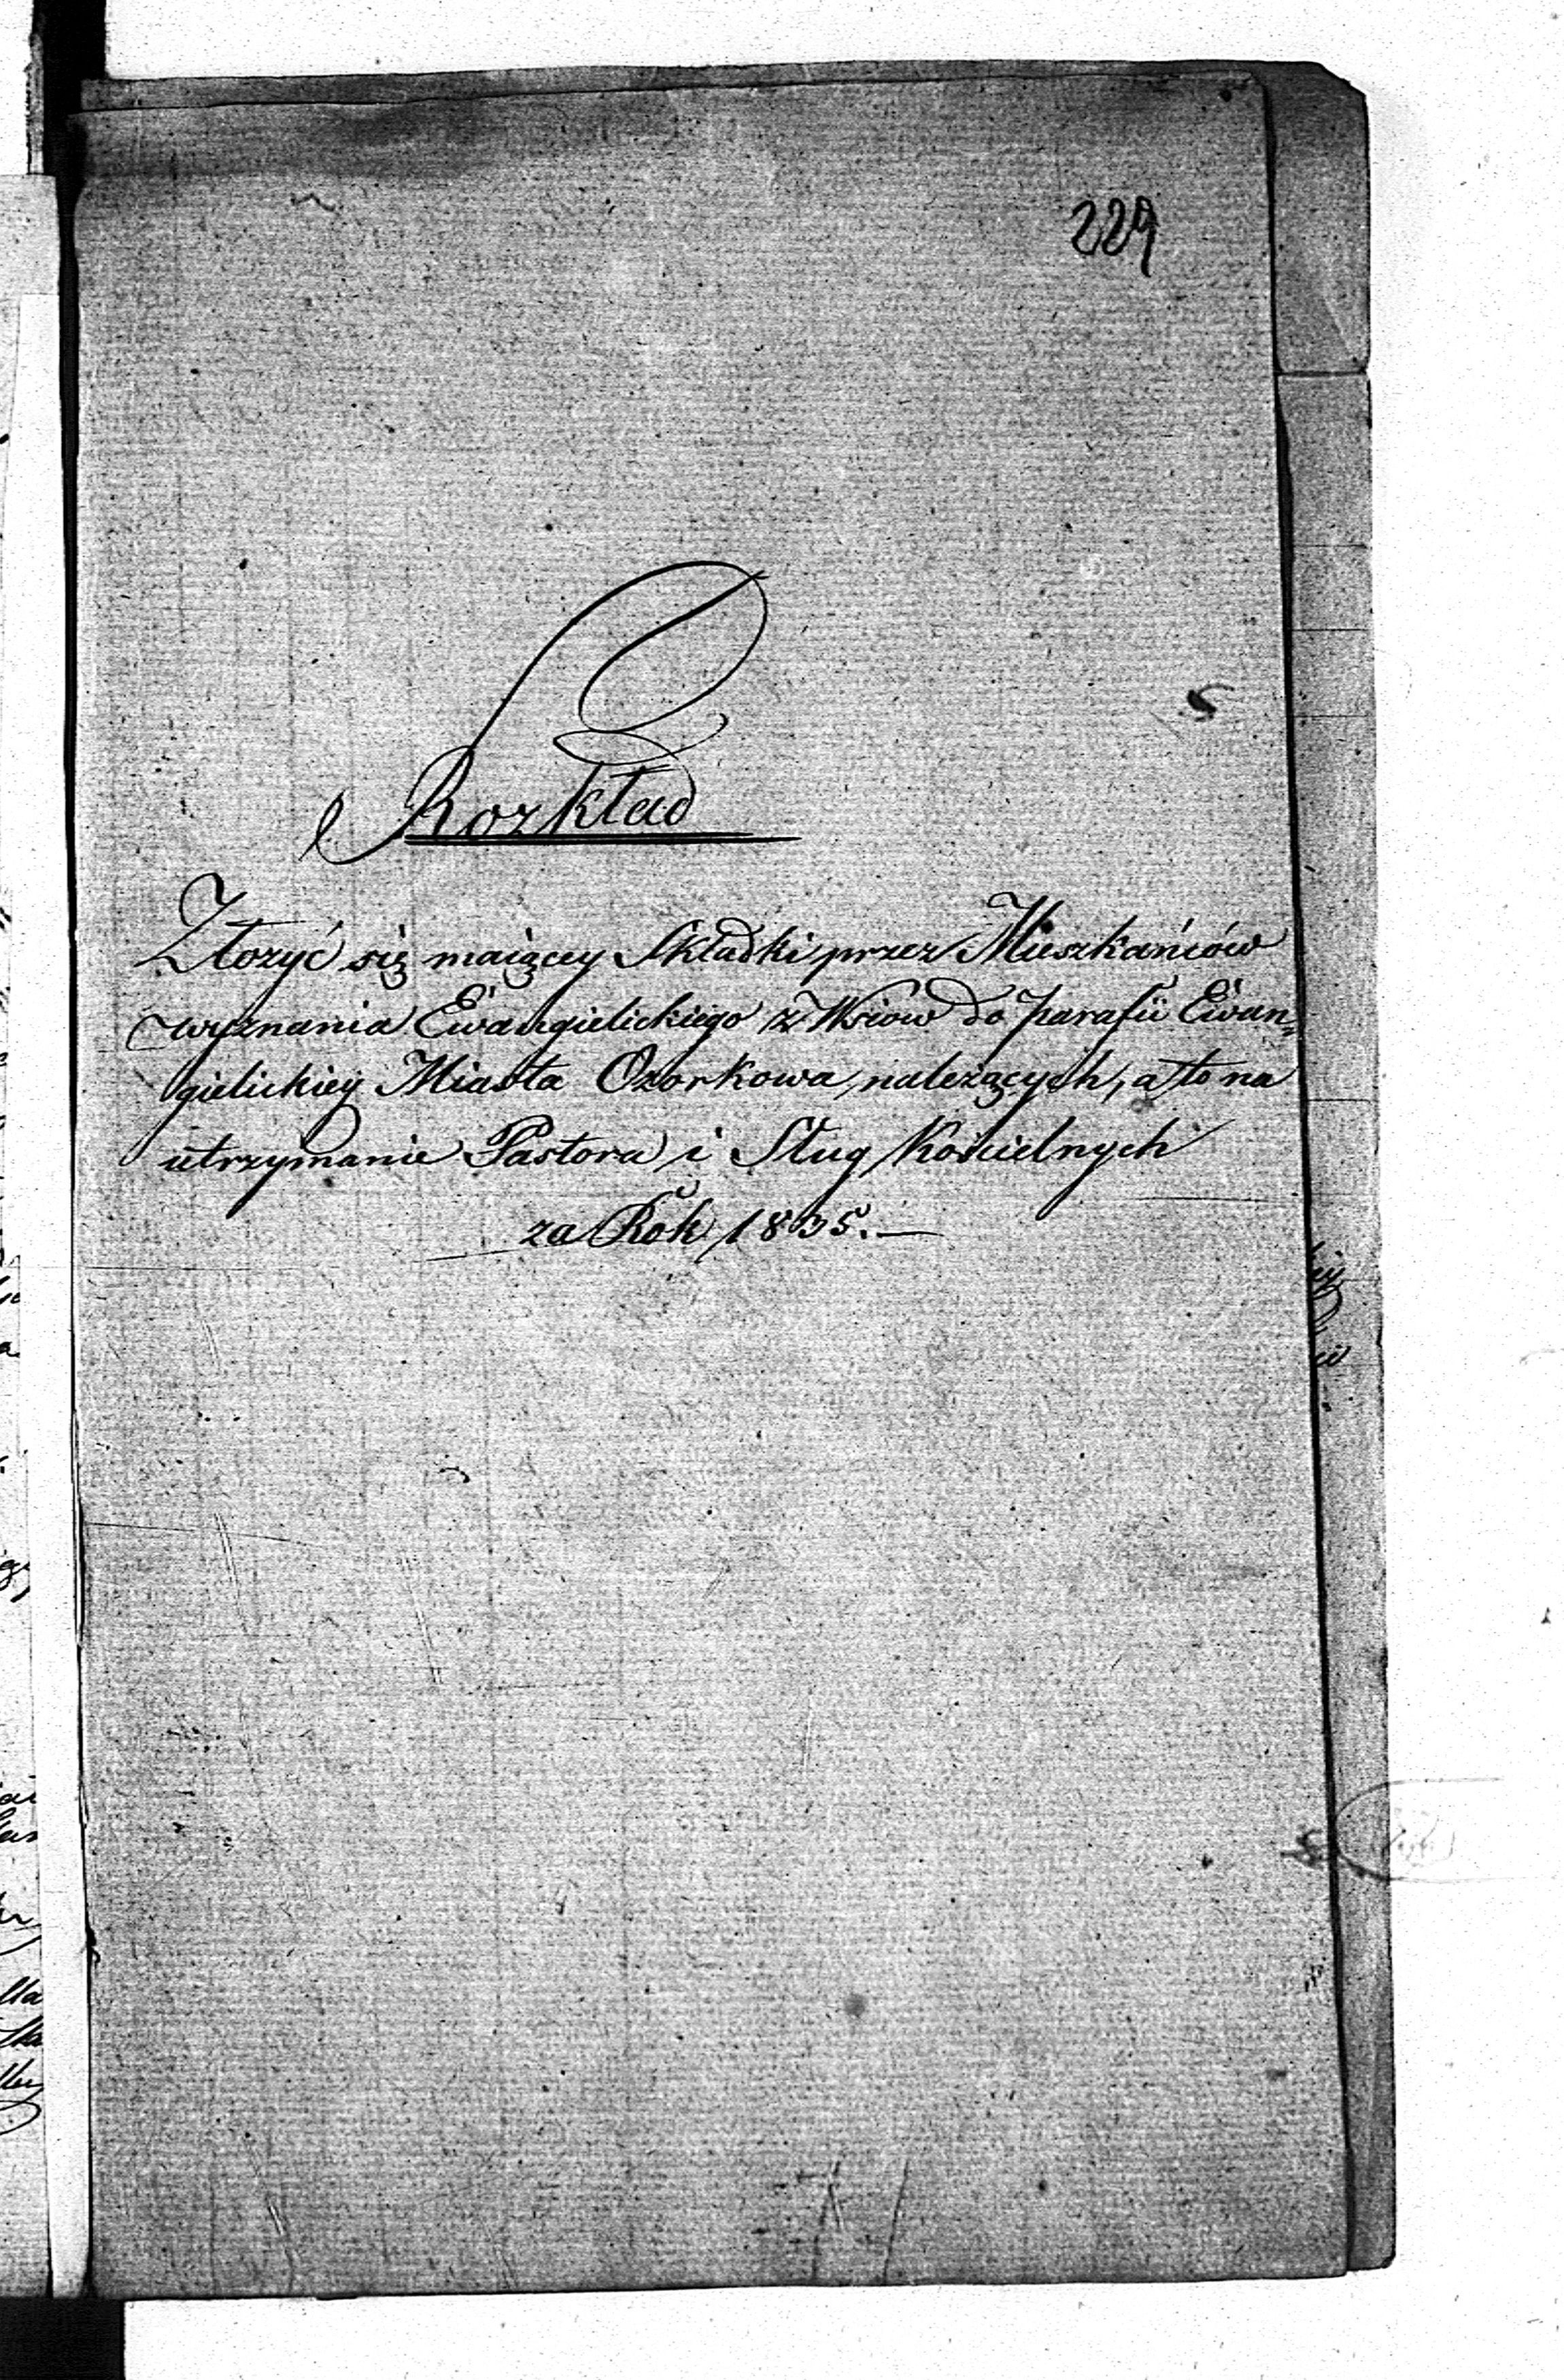 229
Rozkład
Złożyć się maiącey Składki przez Mieszkańców
wyznania Ewangielickiego z Wsiów do parafii Ewan=
gielickiey Miasta Ozorkowa należących, a to na
utrzymanie Pastora i Sług Kościelnych
za Rok 1835.—